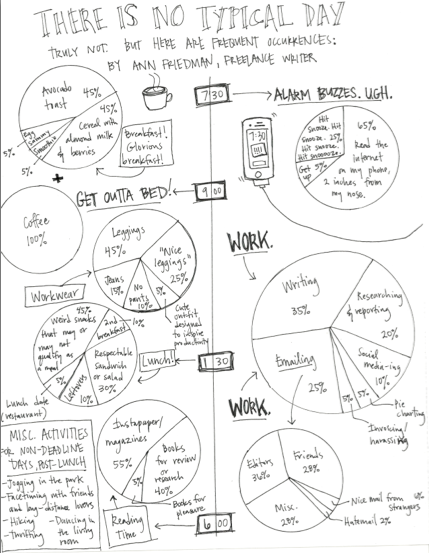 THERE IS NO TYPICAL DAY
TRULY NOT. BUT HERE ARE FREQUENT OCCURRENCES:
BY ANN FRIEDMAN, FREELANCE WRITER
7:30
ALARM BUZZES. UGH.
7:30
Hit
snooze. Hit
snooze. 25%
Hit snooze.
Hit snoooze.
Get 5%
up
65%
Read the
internet
on my phone,
2 inches from
my nose.
Avocado
toast
45%
45%
Cereal with
almond milk
& berries
Egg
sammy
5%
Smoothie
5%
Breakfast!
Glorious
breakfast!
+
Coffee
100%
GET OUTTA BED!
9:00
Leggings
45%
"Nice
leggings"
25%
Jeans
15%
No
pants
10%
5%
Cute
outfit,
designed
to inspire
productivity
Workwear
WORK.
Writing
35%
Researching
& reporting
20%
Social
media-ing
10%
Emailing
25%
5%
5%
Pie
charting
Invoicing/
harassing
45%
Weird snacks
that may or
may not
qualify as
a meal
2nd
breakfast
10%
Respectable
sandwich
or salad
30%
Leftovers
10%
5%
Lunch date
(restaurant)
Lunch!
1:30
WORK.
Editors
36%
Friends
28%
Misc.
28%
Nice mail from
strangers
Hatemail 2%
Instapaper/
magazines
55%
Books
for review
or
research
40%
5%
Books for
pleasure
Reading
Time
6:00
MISC. ACTIVITIES
FOR NON-DEADLINE
DAYS, POST-LUNCH
- Jogging in the park
- Facetiming with friends
and long-distance lovers
- Hiking
- Thrifting
- Dancing in
the living
room